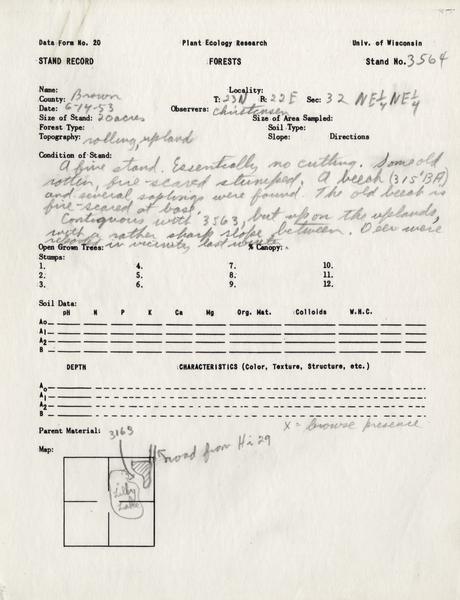 Data Form No. 20 Plant Ecology Research Univ. of Wisconsin
STAND RECORD FORESTS Stand No. 3564
Name: Locality:
County: Brown T: 23N R: 22E Sec: 32 NE¼ NE¼
Date: 6-14-53 Observers: Christensen
Size of Stand: 20 acres Size of Area Sampled:
Forest Type: Soil Type:
Topography: rolling, upland Slope: Directions
Condition of Stand:
A fine stand. Essentially no cutting. Some old
rotten, fire-scared stumps. A beech (315"BA)
and several saplings were found. The old beech is
fire-scared at base.
Contiguous with 3563, but up on the uplands,
with a rather sharp slope between. Deer were
reported in vicinity last
Open Grown Trees: % Canopy:
Stumps:
1. 4. 7. 10.
2. 5. 8. 11.
3. 6. 9. 12.
Soil Data:
pH N P K Ca Mg Org. Mat. Colloids W.H.C.
A₀
A₁
A₂
B
DEPTH CHARACTERISTICS (Color, Texture, Structure, etc.)
A₀
A₁
A₂
B
X = browse presence
Parent Material:
3163
Map: road from Hi 29
Lilly
Lake